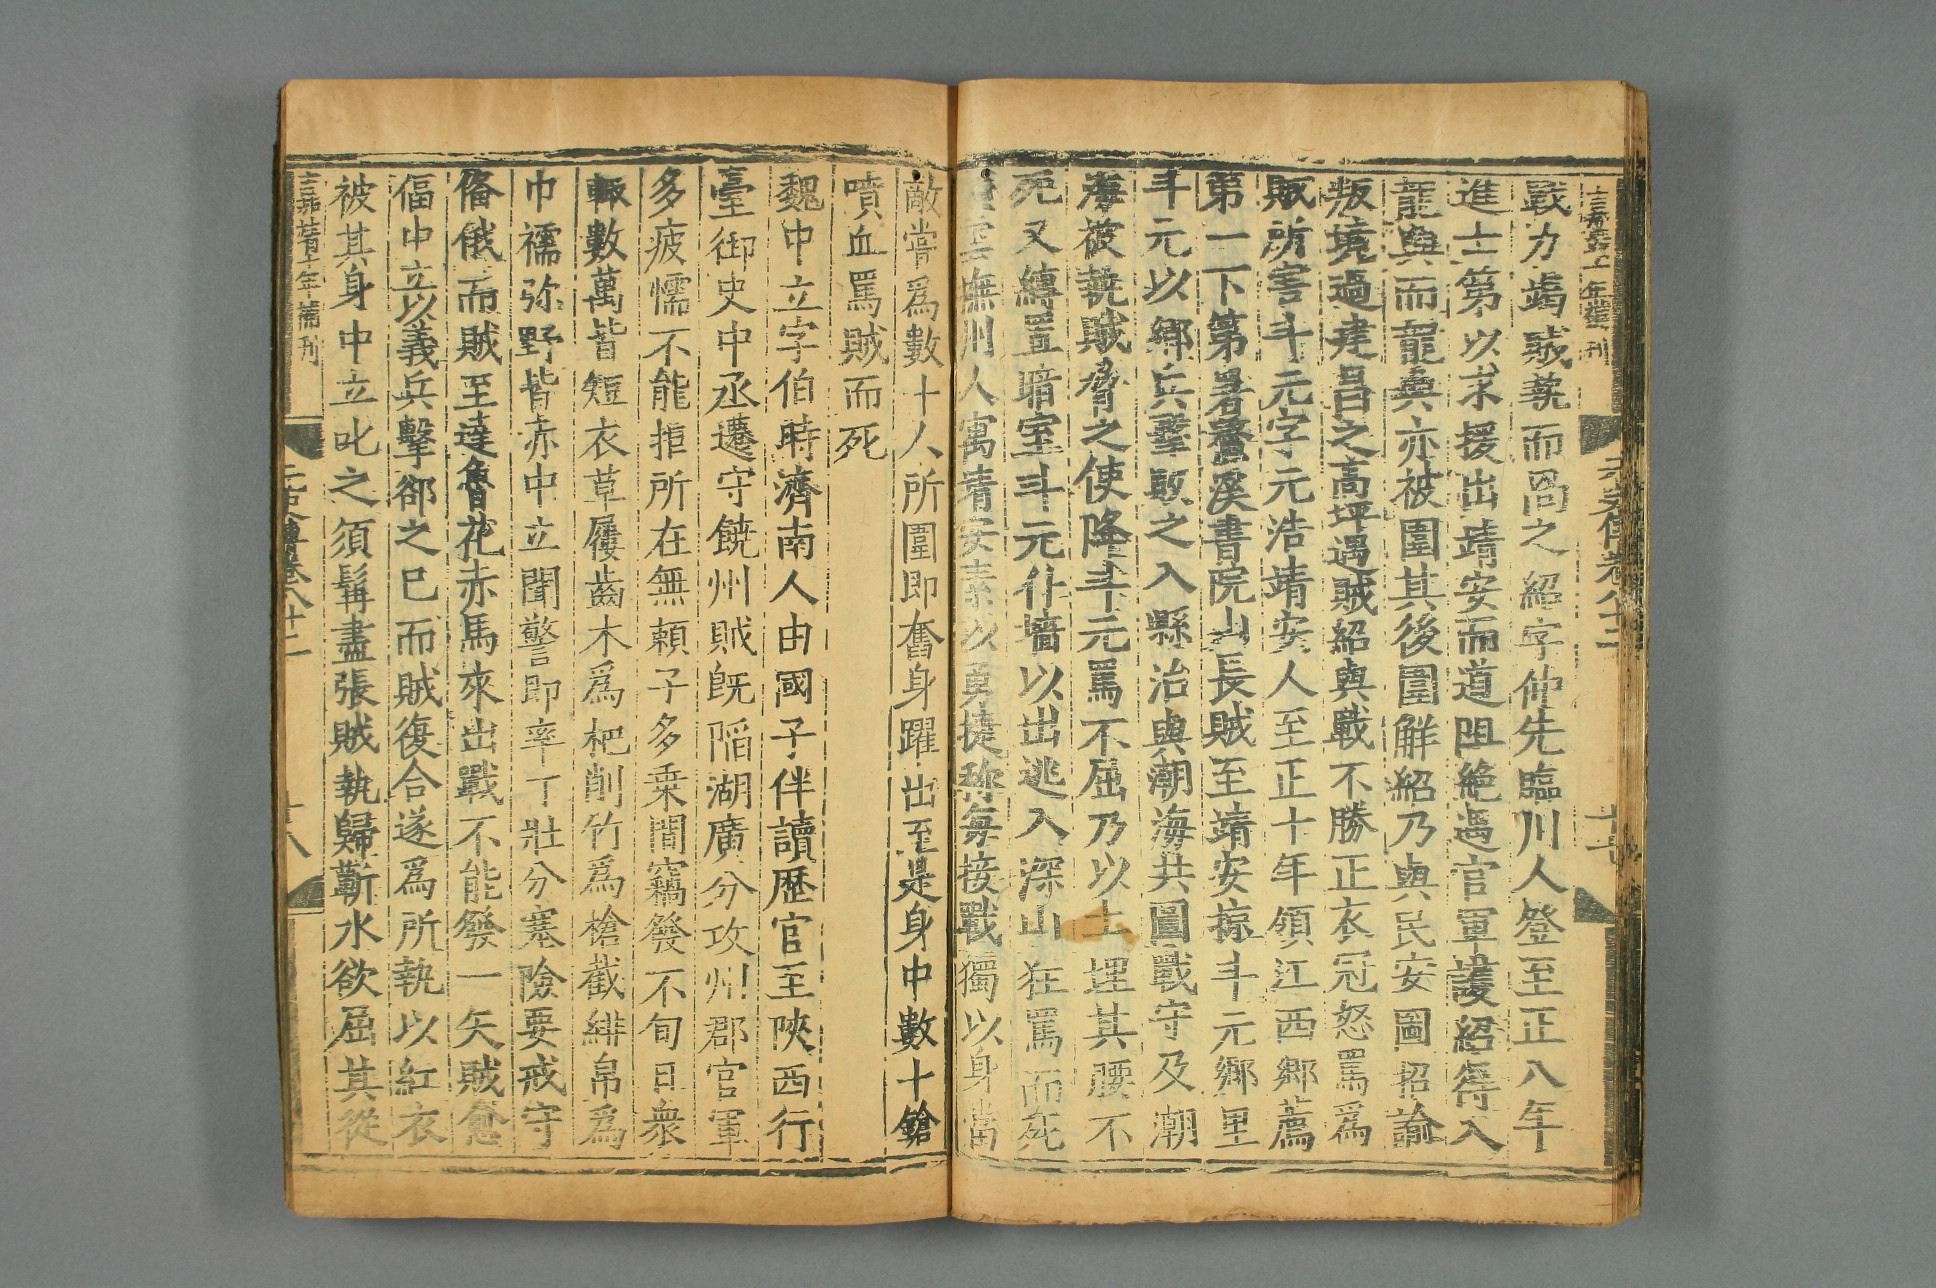 戰力竭賊執而咼之紹字仲先臨川人登至正八年
進士第以求援出靖安而道阻絶遇官軍護紹得入
龍興而龍興亦被圍其後圍解紹乃與民安圖招諭
叛境過建昌之高坪遇賊紹與戰不勝正衣冠怒罵爲
賊所害斗元字元浩靖安人至正十年領江西鄉薦
第一下第署鰲溪書院山長賊至靖安掠斗元鄉里
斗元以鄉兵擊敗之入縣治與潮海共圖戰守及潮
海被執賊脅之使降斗元罵不屈乃以土埋其腰不
死又縛置暗室斗元仆墻以出逃入深山狂罵而死
雲撫州人寓靖安素以勇捷称每接戰獨以身當
敵嘗爲數十人所圍即奮身躍出至是身中數十鎗
噴血罵賊而死
魏中立字伯時濟南人由國子伴讀歷官至陜西行
臺御史中丞遷守饒州賊既陷湖廣分攻州郡官軍
多疲懦不能拒所在無頼子多乗間竊發不旬日衆
輙數萬皆短衣草屨齒木爲杷削竹爲槍截緋帛爲
巾襦弥野皆赤中立聞警即率丁壯分塞險要戒守
俻俄而賊至達魯花赤馬來出戰不能發一矢賊愈
偪中立以義兵擊卻之巳而賊復合遂爲所執以紅衣
被其身中立叱之須髯盡張賊執歸蘄水欲屈其從
嘉靖十年補刊
元史傳卷八十二
十八